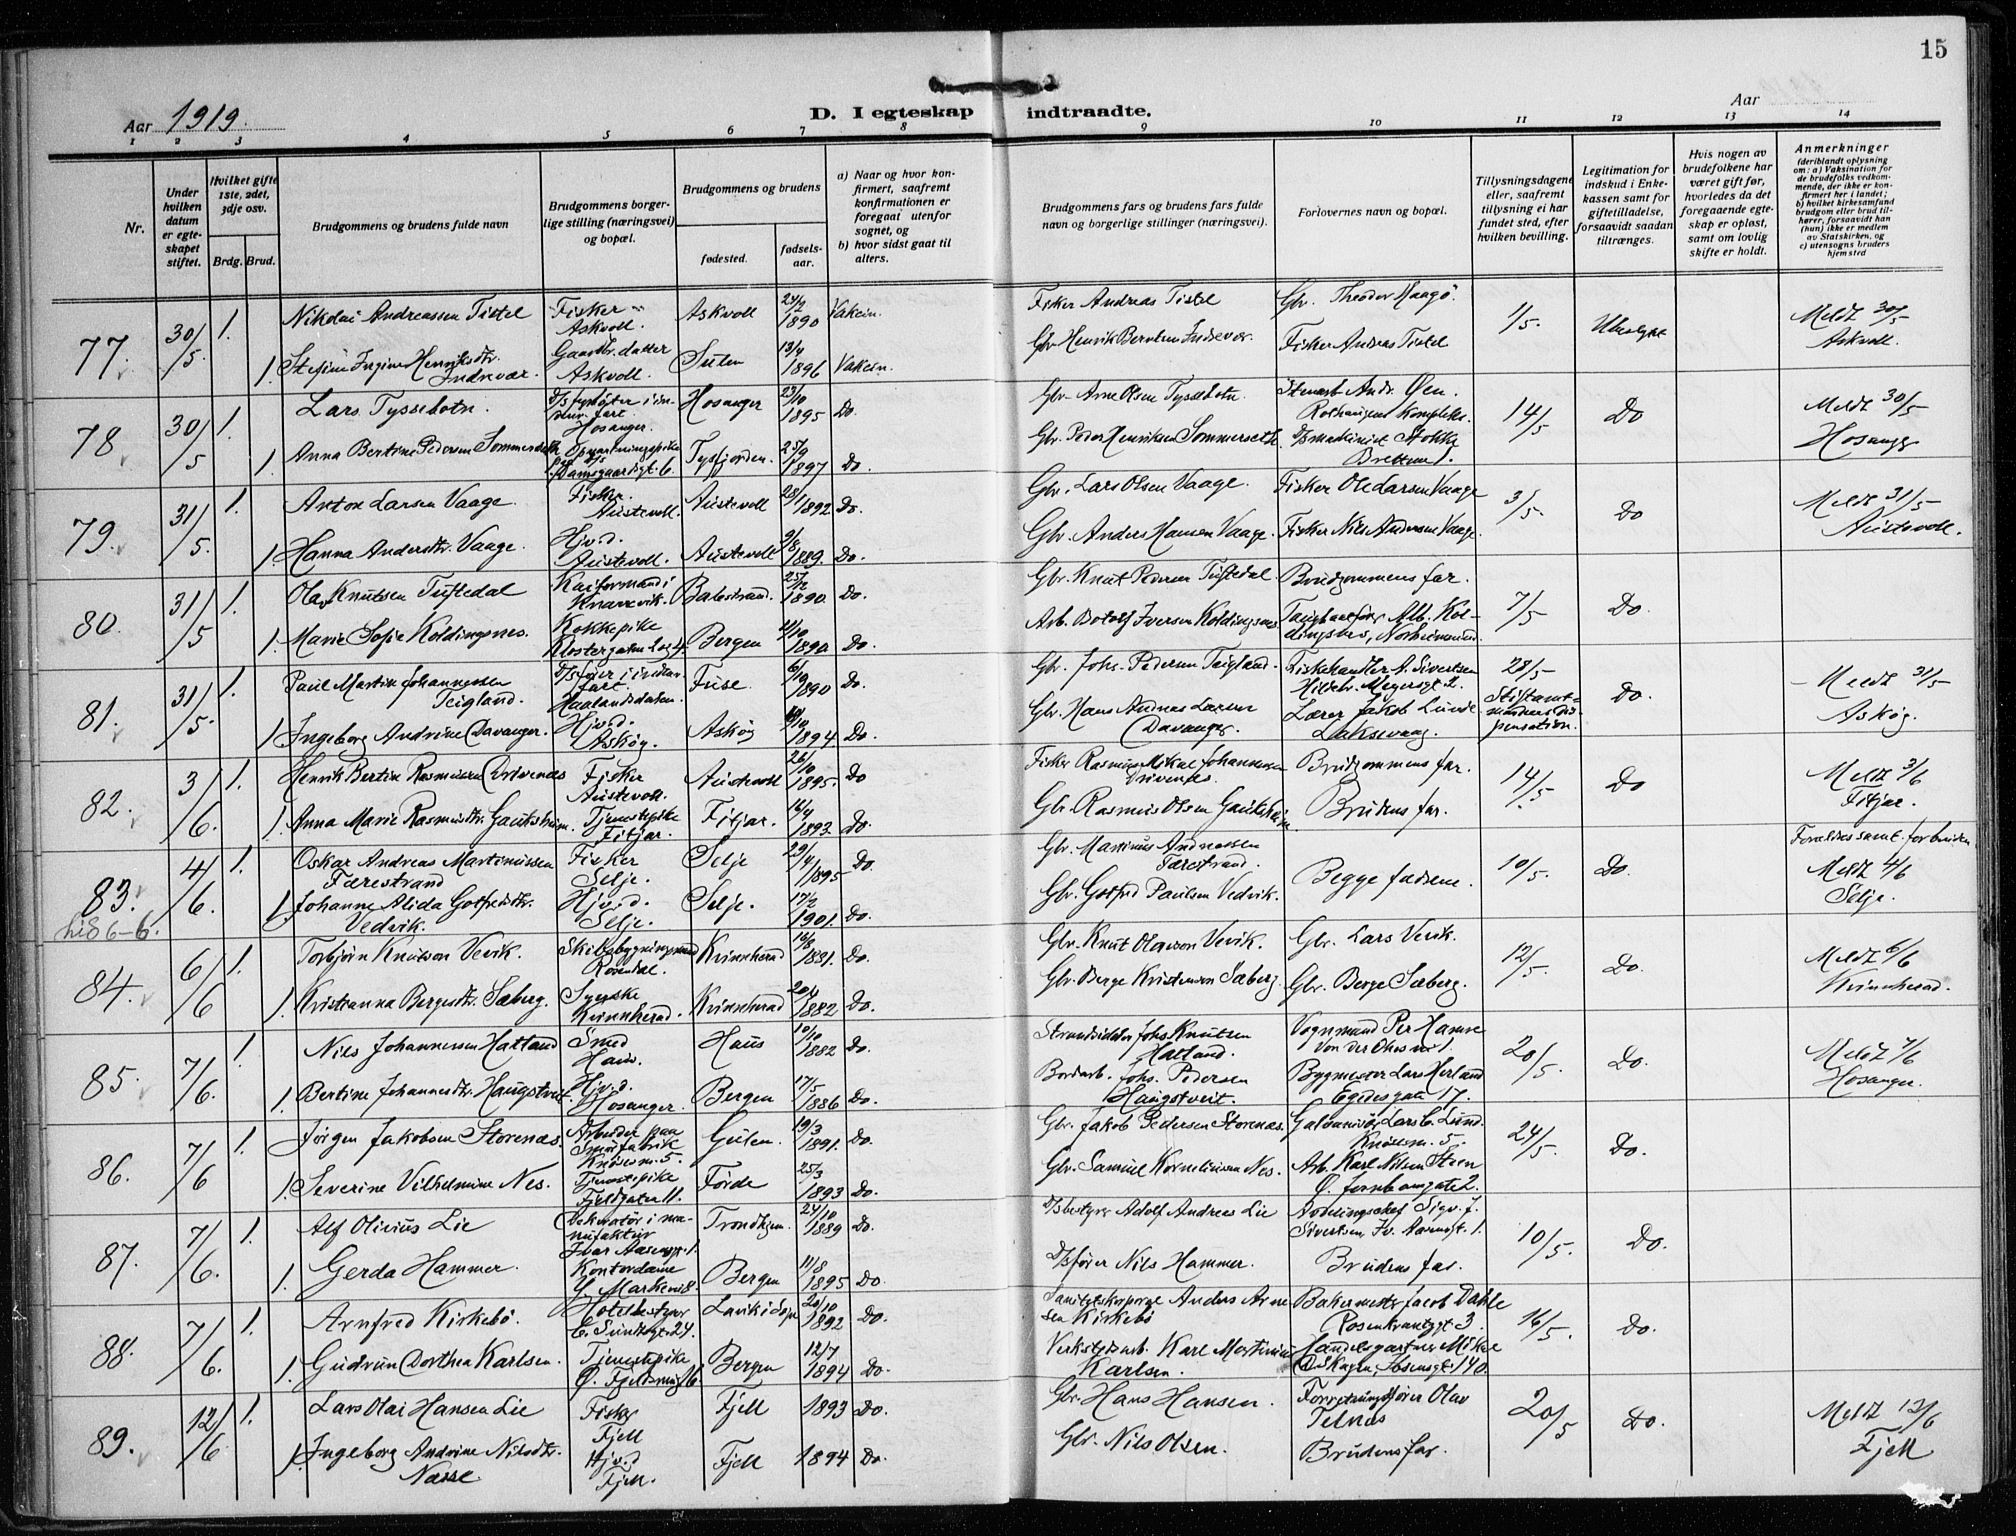 15
Aar 1919.
D. I egteskap indtraadte.
Aar
1 2 3 4 5 6 7 8 9 10 11 12 13 14
Nr.
Under hvilken datum er egteskapet stiftet.
Hvilket gifte 1ste, 2det, 3dje osv.
Brdg. Brud.
Brudgommens og brudens fulde navn
Brudgommens borgerlige stilling (næringsvei) og bopæl.
Brudgommens og brudens
fødested.
fødselsaar.
a) Naar og hvor konfirmert, saafremt konfirmationen er foregaat utenfor sognet, og
b) hvor sidst gaat til alters.
Brudgommens fars og brudens fars fulde navn og borgerlige stillinger (næringsvei).
Forlovernes navn og bopæl.
Tillysningsdagene eller, saafremt tillysning ei har fundet sted, efter hvilken bevilling.
Legitimation for indskud i Enkekassen samt for giftetilladelse, forsaavidt saadan tiltrænges.
Hvis nogen av brudefolkene har været gift før, hvorledes da det foregaaende egteskap er opløst, samt om lovlig skifte er holdt.
Anmerkninger
(deriblandt oplysning om: a) Vaksination for de brudefolks vedkommende, der ikke er konfirmert her i landet; b) hvilket kirkesamfund brudgom eller brud tilhører, forsaavidt han (hun) ikke er medlem av Statskirken, og c) utensogns bruders hjemsted
77. 30/5. 1. Nikolai Andreassen Tistel Fisker Askvoll. Askvoll 24/2 1890 Vaksin. Fisker Andreas Tistel Gbr. Theodor 1/5. Meldt 30/5 Askvoll.
1. Henriksdtr. Indrevær Gaardbr. datter Askvoll. 1896 Vaksin. Gbr Henrik Indrevær Fisker Andreas Tistel
78 30/5 1. Lars Tyssebotn. Hosanger. Hosanger 23/10 1895 Do. Gbr Arne Olsen Tyssebotn 14/5 Do Meldt 30/5 Hosanger
1. Anna Bertine Pedersen Sommerseth Opvartningspike Damsgaardsgt. 6. Tysfjorden. 25/9 1897 Do. Gbr. Peder Henriksen Sommerseth
79. 31/5. 1. Anton Larsen Vaage. Fisker. Austevoll. Austevoll 28/1 1892 Do. Gbr. Lars Olsen Vaage. Fisker Ole Larsen Vaage 3/5. Do Meldt 31/5 Austevoll.
1. Hanna Andersdtr. Vaage. Hjv.d. Austevoll. Austevoll 9/8 1889. Do. Gbr. Anders Hansen Vaage. Fisker Nils Andersen Vaage.
80. 31/5 1. Olaf Knutsen Tuftedal Kaiformand i Knarrevik. Balestrand. 25/12 1890. Do. Gbr. Knut Pedersen Tuftedal. Brudgommens far. 7/5 Do.
1. Marie Sofie Koldingsnes. Kokkepike Bergen 1890. Do. Arb. Botolf Iversen Koldingsnes
81. 31/5. 1. Paul Martin Johannessen Teigland. Fuse. 1890 Do. Gbr. Johs. Pedersen Teigland. Fiskehandler A. Sivertsen 28/5 Do. Meldt 31/5 Askøy.
1. Ingeborg Andrine Davanger. Hjv.d. Askøy. Askøy 1894. Do. Gbr. Hans Andreas Larsen Davanger. Lærer Jakob Lunde Laksevaag.
82. 3/6. 1. Henrik Bertin Rasmussen Drivenes Fisker Austevoll. Austevoll 26/10 1895. Do Fisker Rasmus Mikal Johannessen Drivenes. Brudgommens far. 14/5. Do Meldt 3/6 Fitjar.
1. Anna Marie Rasmusdtr. Gauksheim. Tjenestepike Fitjar. Fitjar. 1893. Do. Gbr. Rasmus Olsen Gauksheim. Brudens far.
83. 4/6. 1. Oskar Andreas Martinussen Færestrand Fisker Selje. Selje 29/4 1895 Do. Gbr. Martinus Andreassen Færestrand. Begge fædrene. 10/5. Do. Meldt 4/6 Selje.
1 Johanne Alida Gotfredsdtr. Vedvik. Hjv.d. Selje. Selje. 17/2 1901. Do. Gbr. Gotfred Paulsen Vedvik.
84. 6/6 1. Torbjørn Knutson Vevik. Rosendal. Kvinnherad 16/8 1881. Do. Gbr. Knut Olavson Vevik. Gbr. Lars Vevik. 12/5. Do. Meldt 6/6 Kvinnherad.
1. Kristianna Bergesdtr. Sæberg. Syerske Kvinnherad. Kvinnherad 1882 Do. Gbr. Berge Kristenson Sæberg Gbr. Berge Sæberg.
85. 7/6. 1. Nils Johannessen Hatland Smed Haus. Haus 10/10 1882 Do. Strandsidder Johs Knutsen Hatland. Vognmand Per Hamre 20/5. Do. Meldt 7/6 Hosanger.
1. Bertine Johannesdtr. Haugstveit. Hjv.d. Hosanger. Bergen 17/5 1886 Do. Bordarb. Johs. Pedersen Haugstveit. Bygmester Lars Herland Egedesgate 17.
86. 7/6 1. Jørgen Jakobsen Storenæs. Arbeider paa Knøsesm. 5. Gulen. 19/3 1891. Do. Gbr. Jakob Pedersen Storenæs. Lars C. Lund. Knøsesm. 5. 24/5. Do.
1. Severine Vilhelmine Nes. Tjenestepike Fjeldgaten 11. Førde 25/3 1893 Do. Gbr. Samuel Korneliussen Nes. Arb. Karl Nilsen Steen
87. 7/6. 1. Alf Olivius Lie Dekoratør i manufaktur Ivar Aasensgt. 1. Trondhjem. 24/10 1889 Do. Adolf Andreas Lie Avdelingschef Sigv. J. Sivertsen, Iv. Aasensgt. 1. 10/5. Do.
1. Gerda Hammer. Kontordame Bergen 11/8 1895 Do. D/sfører Nils Hammer. Brudens far.
88. 7/6. 1. Arnfred Kirkebø Hotelbestyrer C. Sundtsgt. 24. Lavik i Sogn 20/10 1892 Do. Anders Arnesen Kirkebø Bakermester Jacob Dahle Rosenkrantzgt 3. 16/5. Do.
1. Gudrun Dorthea Karlsen. Tjenestepike Bergen 12/7 1894 Do. Verkstedsarb. Karl Martinius Karlsen. Handelsgartner Mikal Ibsensgt. 140.
89. 12/6 1. Lars Olai Hansen Lie Fisker Fjell Fjell 1893 Do. Gbr. Hans Hansen. Forretningsfører Olav Telnæs 20/5 Do. Meldt 12/6 Fjell
1. Ingeborg Andrine Nilsdtr. Næsse. Hjv.d Fjell. Fjell 1894 Do. Gbr. Nils Olsen. Brudens far.